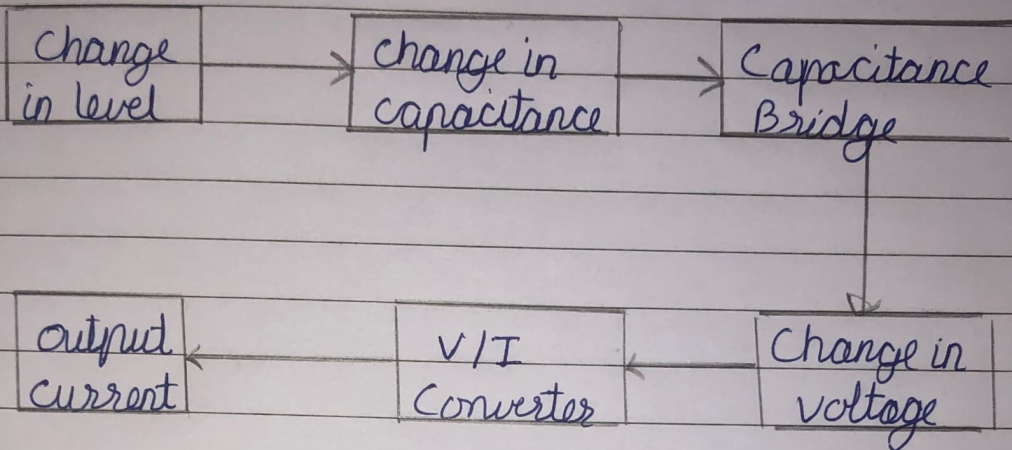 Change
in level
change in
capacitance
Capacitance
Bridge
Change in
voltage
V/I
Converter
output
current